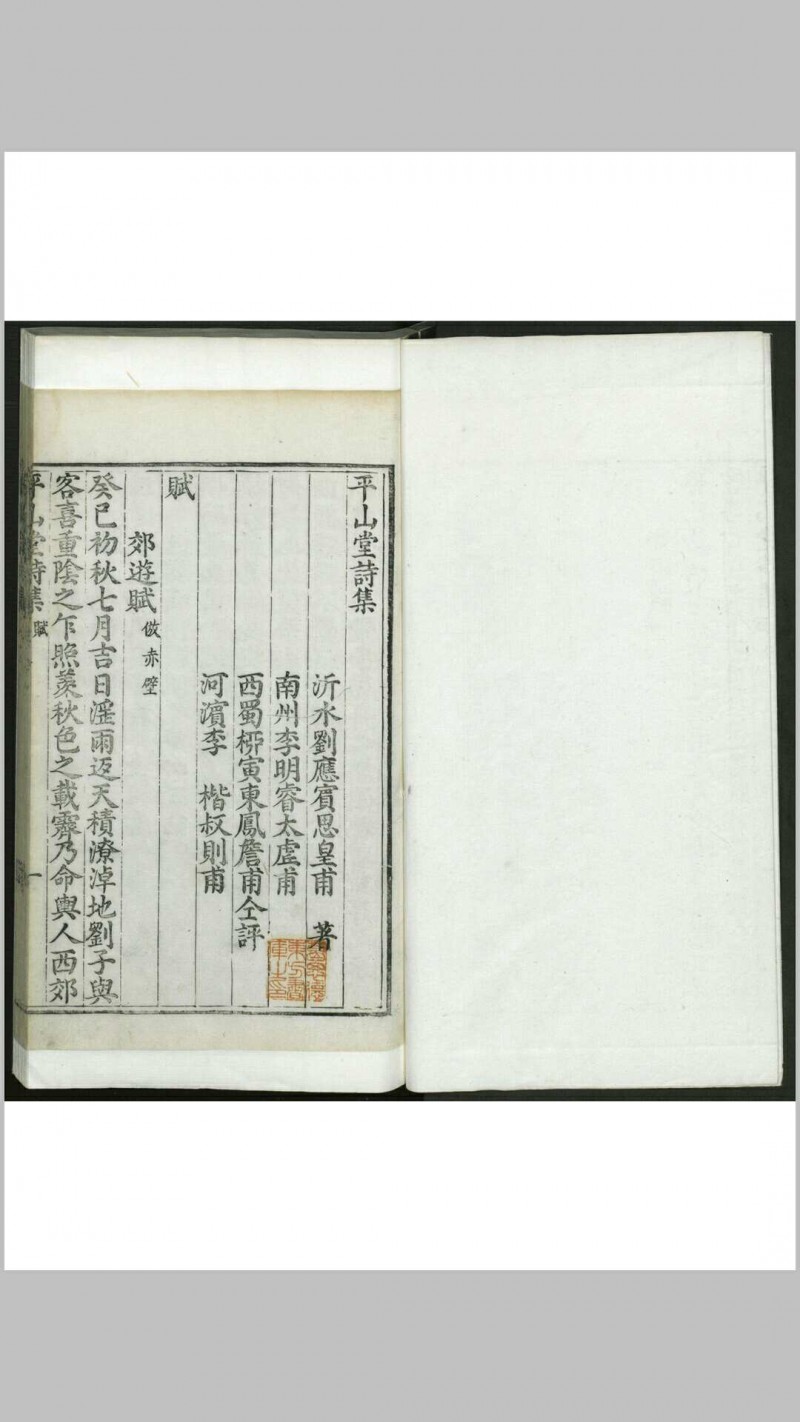 平山堂詩集
沂水劉應賓思皇甫 著
南州李明睿太虛甫
西蜀栁寅東鳳詹甫仝評
河濵李 楷叔則甫
賦
郊遊賦 倣赤壁
癸巳初秋七月吉日滛雨迈天積潦淖地劉子與
客喜重陰之乍照羨秋色之載霽乃命輿人西郊
平山堂詩集 賦 一